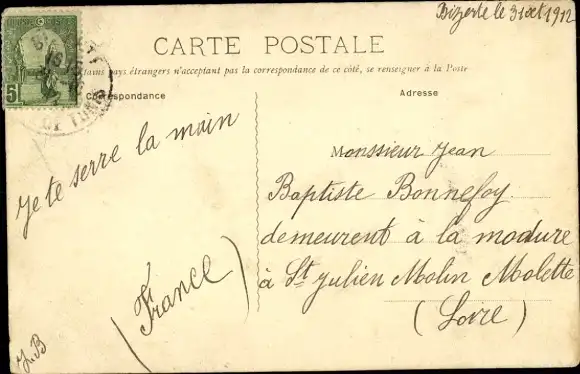 Bizerte le 31 oct 1912
CARTE POSTALE
tains pays étrangers n'acceptant pas la correspondance de ce côté, se renseigner à la Poste
Correspondance
Adresse
5
Je te serre la main
Monsieur Jean
Baptiste Bonnefoy
demeurent à la modure
à St Julien Molin Molette
(Loire)
(France)
J.B